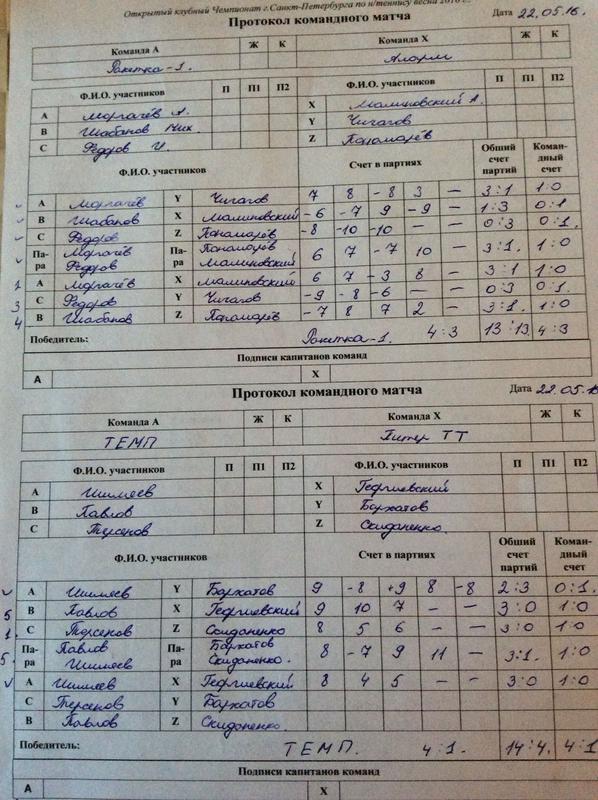 Открытый клубный Чемпионат г.Санкт-Петербурга по н/теннису весна 2016 г.
Протокол командного матча Дата 22.05.16.
Команда А Ж К Команда X Ж К
Ракетка-1. Алорм
Ф.И.О. участников П П1 П2 Ф.И.О. участников П П1 П2
А Моргачёв А. X Малиновский А.
В Шабанов Ник. Y Чигагов
С Федоров И. Z Паномарёв
Ф.И.О. участников Счет в партиях Общий счет партий Коман-дный счет
А Моргачёв Y Чигагов 7 8 -8 3 — 3:1 1:0
В Шабанов X Малиновский -6 -7 9 -9 — 1:3 0:1
С Федоров Z Паномарёв -8 -10 -10 — — 0:3 0:1.
Па-ра Моргачёв Федоров Па-ра Паномарёв Малиновский 6 7 -7 10 — 3:1. 1:0
2 А Моргачёв X Малиновский 6 7 -3 8 — 3:1 1:0
3 С Федоров Y Чигагов -9 -8 -6 — — 0:3 0:1.
4 В Шабанов Z Паномарёв -7 8 7 2 — 3:1. 1:0
Победитель: Ракетка-1. 4:3 13:13 4:3
Подписи капитанов команд
А X
Протокол командного матча Дата 22.05.16
Команда А Ж К Команда X Ж К
ТЕМП Питер ТТ
Ф.И.О. участников П П1 П2 Ф.И.О. участников П П1 П2
А Шишлеев X Георгиевский
В Павлов Y Бархатов
С Терсенов Z Скиданенко.
Ф.И.О. участников Счет в партиях Общий счет партий Коман-дный счет
А Шишлеев Y Бархатов 9 -8 +9 8 -8 2:3 0:1.
5 В Павлов X Георгиевский 9 10 7 — — 3:0 1:0
1. С Терсенов Z Скиданенко 8 5 6 — — 3:0 1:0
5. Па-ра Павлов Шишлеев Па-ра Бархатов Скиданенко. 8 -7 9 11 — 3:1. 1:0
А Шишлеев X Георгиевский 8 4 5 — — 3:0 1:0
С Терсенов Y Бархатов
В Павлов Z Скиданенко.
Победитель: ТЕМП. 4:1. 14:4. 4:1
Подписи капитанов команд
А X